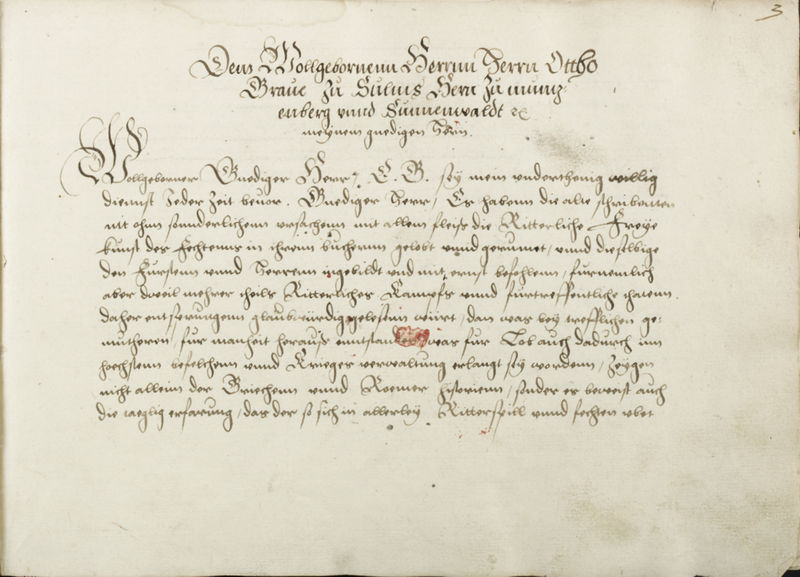 3
Dem Wollgebornenn Herrnn Herrn Ottho
Graue zu Sulms Hern zu muntz
enberg vnnd Sunnenwaldt ꝛc
meynem gnedigen Herrn.
Wollgeborner Gnediger Herr, E. G. sey mein vnderthenig willig
diennst Jeder Zeit beuor. Gnediger Herr, Es habenn die alte schribenten
nit ohnn sonnderlichenn vrsachenn mit allem fleiss die Ritterliche Freye
kunst des Fechtenns in ihrenn büchernn gelobt vnnd gerumet, vnnd dieselbige
den Furstenn vnnd Herrenn ingebildt vnd mit ernst befohlenn, furnemlich
aber dweil mehrer theils Ritterliches Kampfs vnnd furtreffentliche thatenn.
daher entspringenn glaubwürdig gelesenn würt, dan was bey trefflichen ge=
mutheren, fur manheit herauss enntstanden was fur Lob auch dadurch inn
hoechstem befelchenn vnnd Krieges verwaltung erlangt sey wordenn, zeygen
nicht allein der Griechenn vnnd Roemer historienn, sonder es beweist auch
die teglig erfarung, das der so sich in allerley Ritterspill vnnd fechten vbet